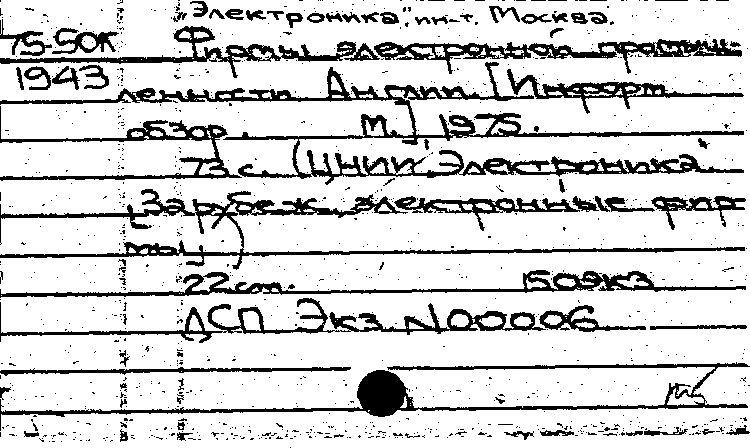 "Электроника", ин-т. Москва.
75-50К Фирмы электронной промыш-
1943 ленности Англии. [Информ.
обзор. М.] 1975.
73 с. (ЦНИИ "Электроника".
Зарубеж. электронные фир-
мы)
22 см. 150 экз
ДСП Экз N00006